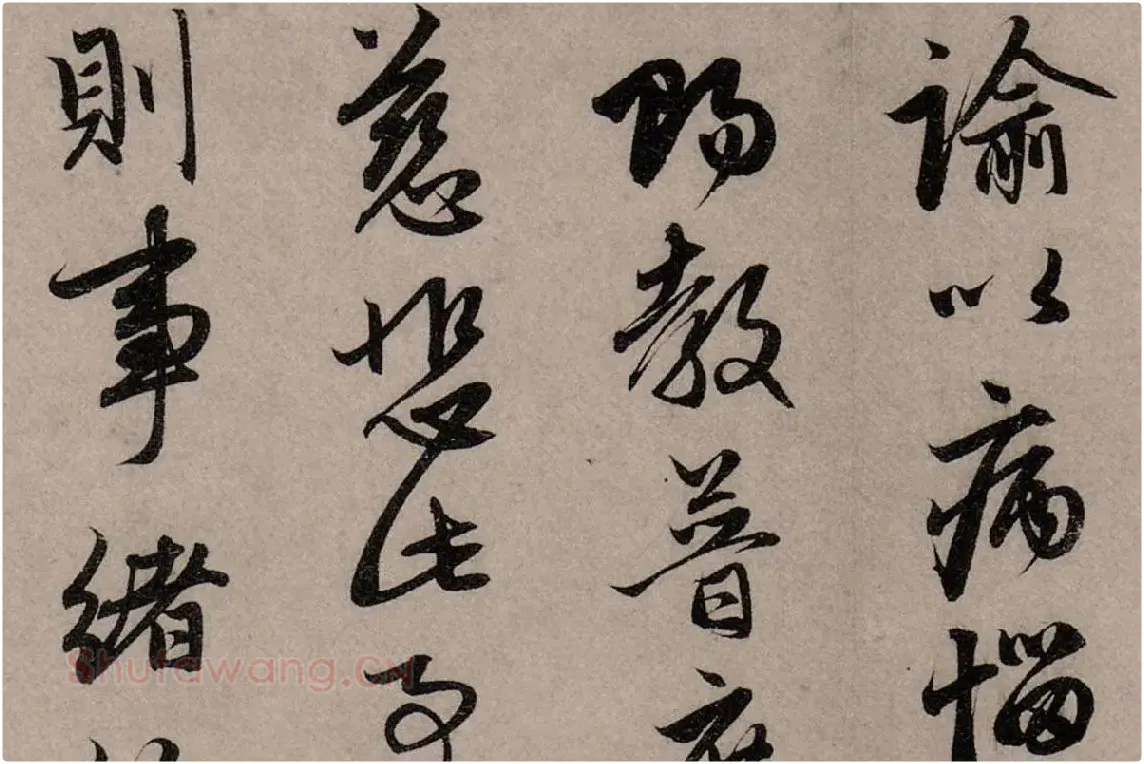 諭以病惱
賜教普
慈悲此
則事緒
Shufawang.CN